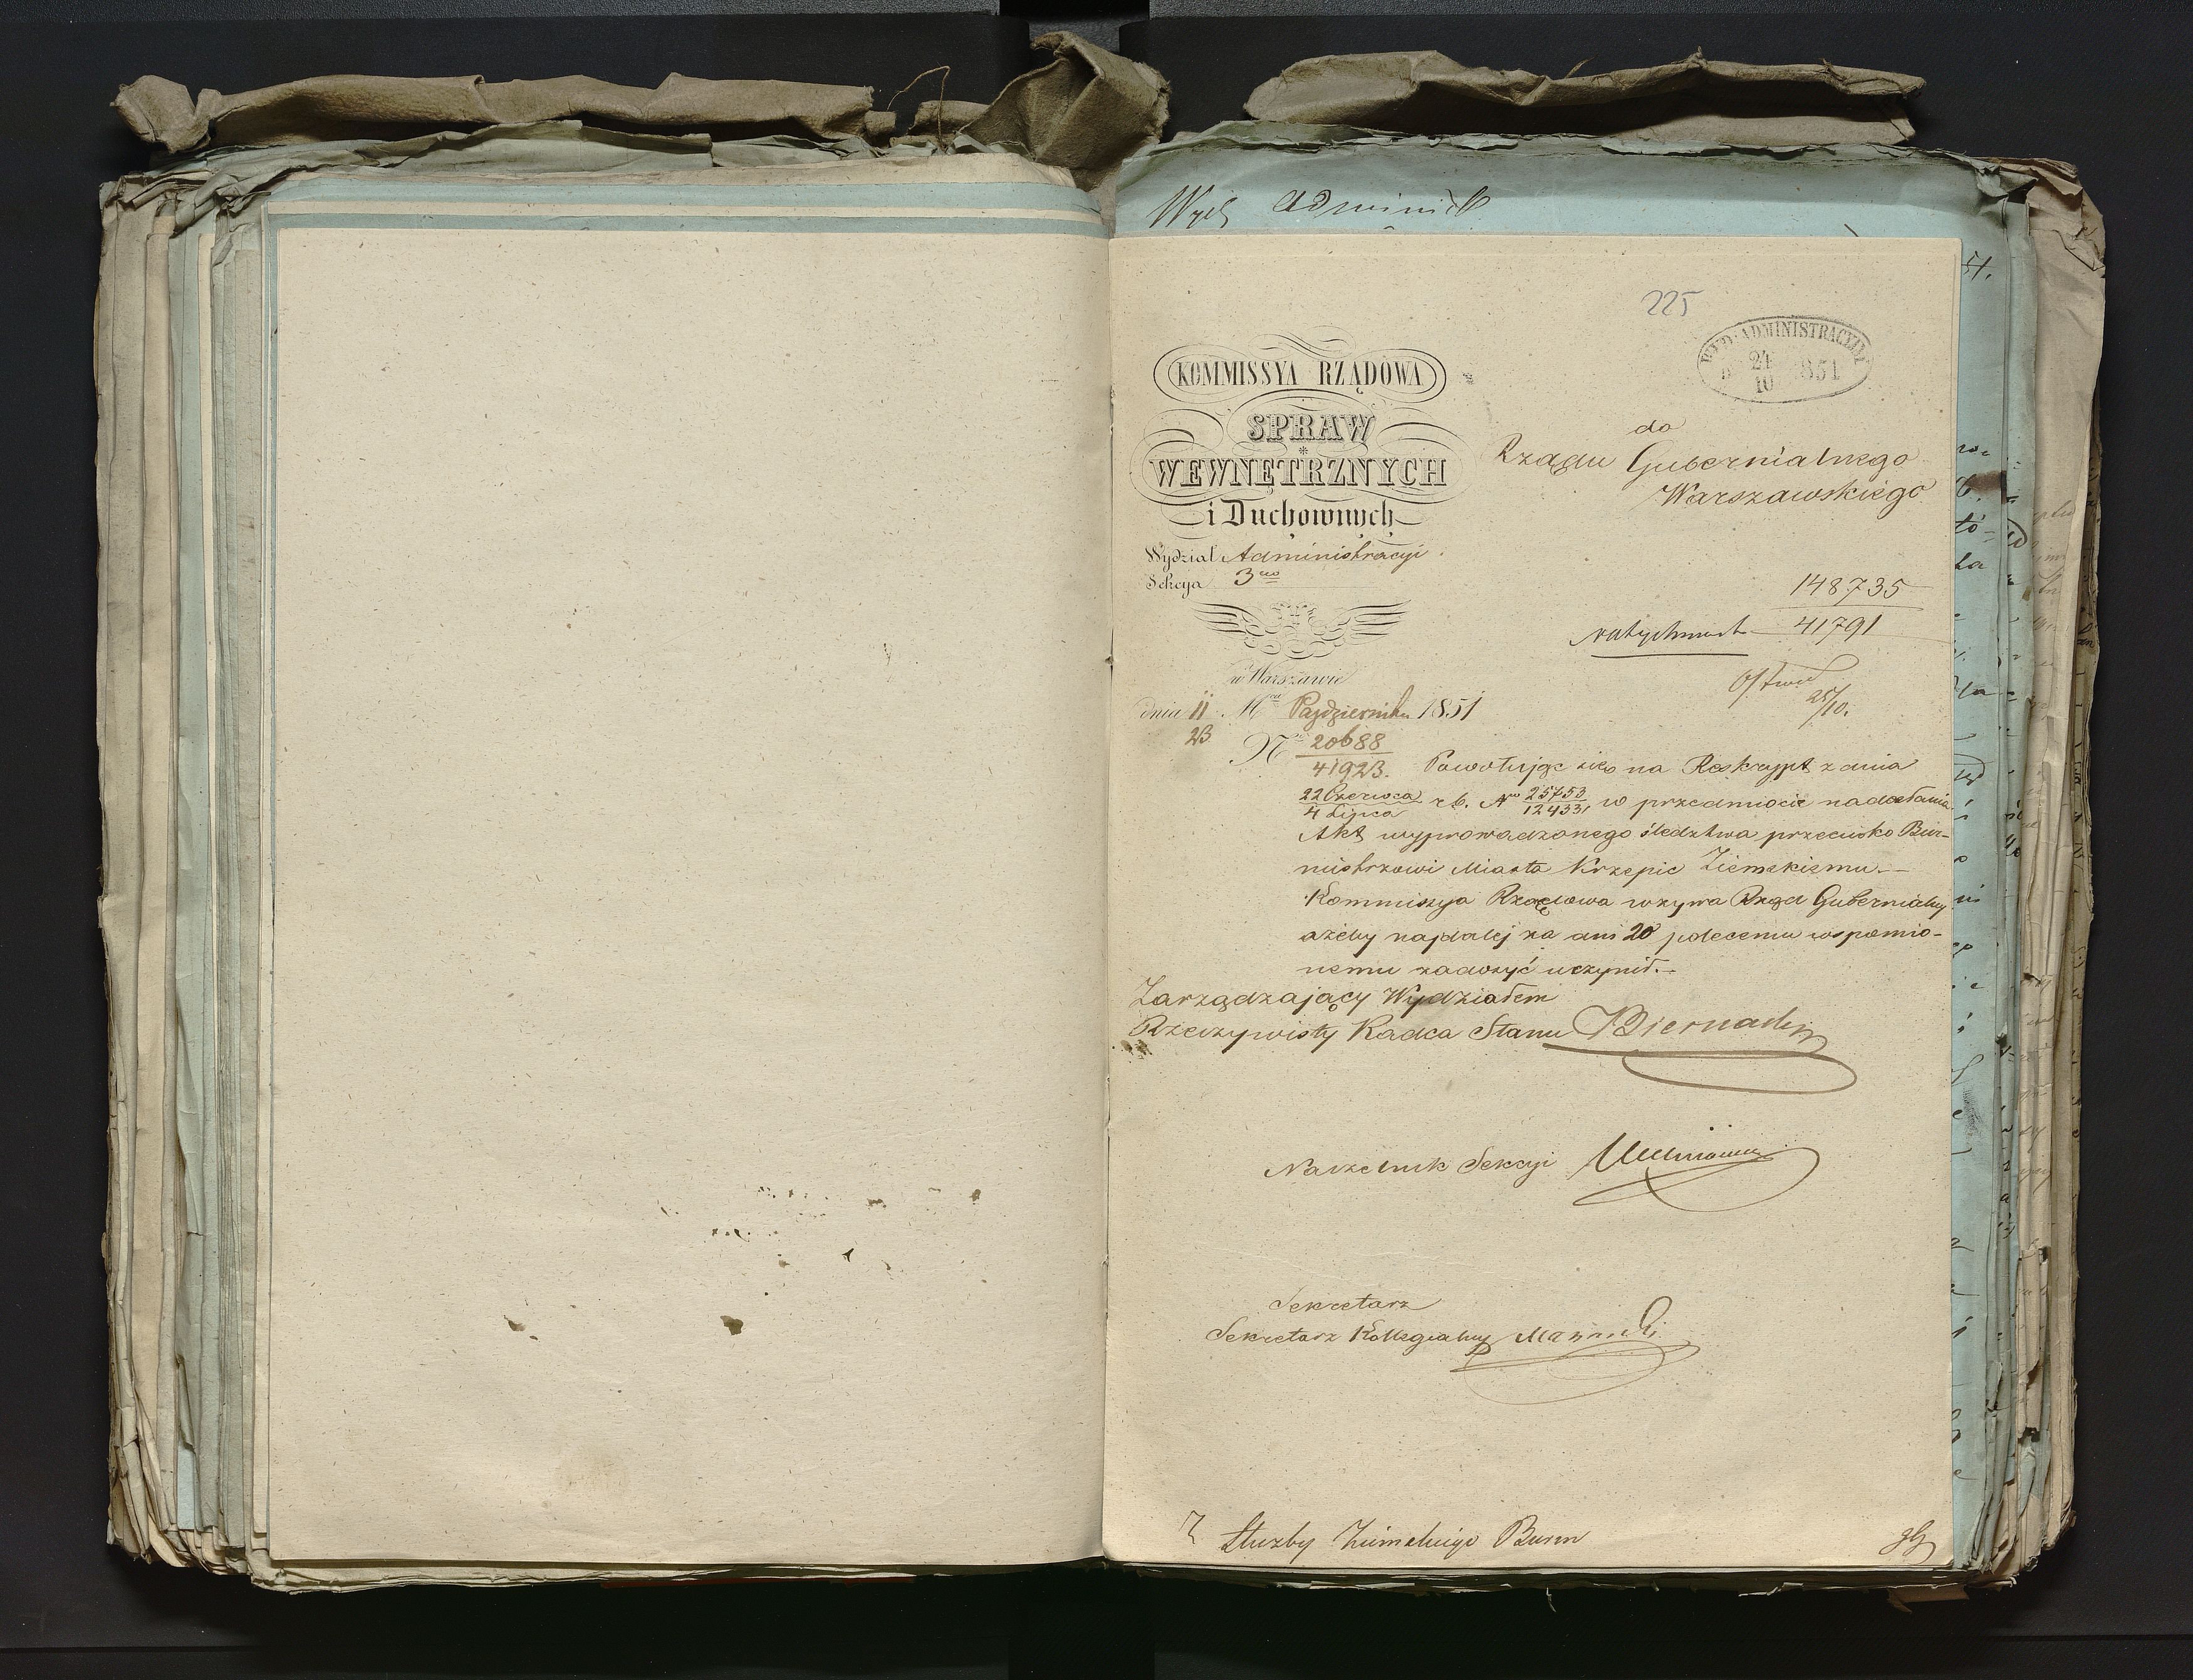 Wydz Administr
225
WYD. ADMINISTRACYJNY
D 24/10 1851
KOMMISSYA RZĄDOWA
SPRAW
WEWNĘTRZNYCH
i Duchownych
Wydział Administracyi
Sekcya 3cia
w Warszawie
dnia 11/23 Mca Października 1851
No 20688/41923.
do
Rządu Gubernialnego
Warszawskiego
148735
natychmiast 41791
25/10.
Powołując się na Reskrypt z dnia
22 Czerwca/4 Lipca r. b. No 25753/12433, w przedmiocie nadesłania
Akt wyprowadzonego śledztwa przeciwko Bur-
mistrzowi Miasta Krzepic Ziemskiemu.—
Kommissya Rządowa wzywa Rząd Gubernialny
ażeby najdalej za dni 20 poleceniu wspomio-
nemu zadosyć uczynił.—
Zarządzający Wydziałem
Rzeczywisty Radca Stanu Biernacki
Naczelnik Sekcyi
Sekretarz
Sekretarz Kollegialny
Służby Ziemskiego Burm